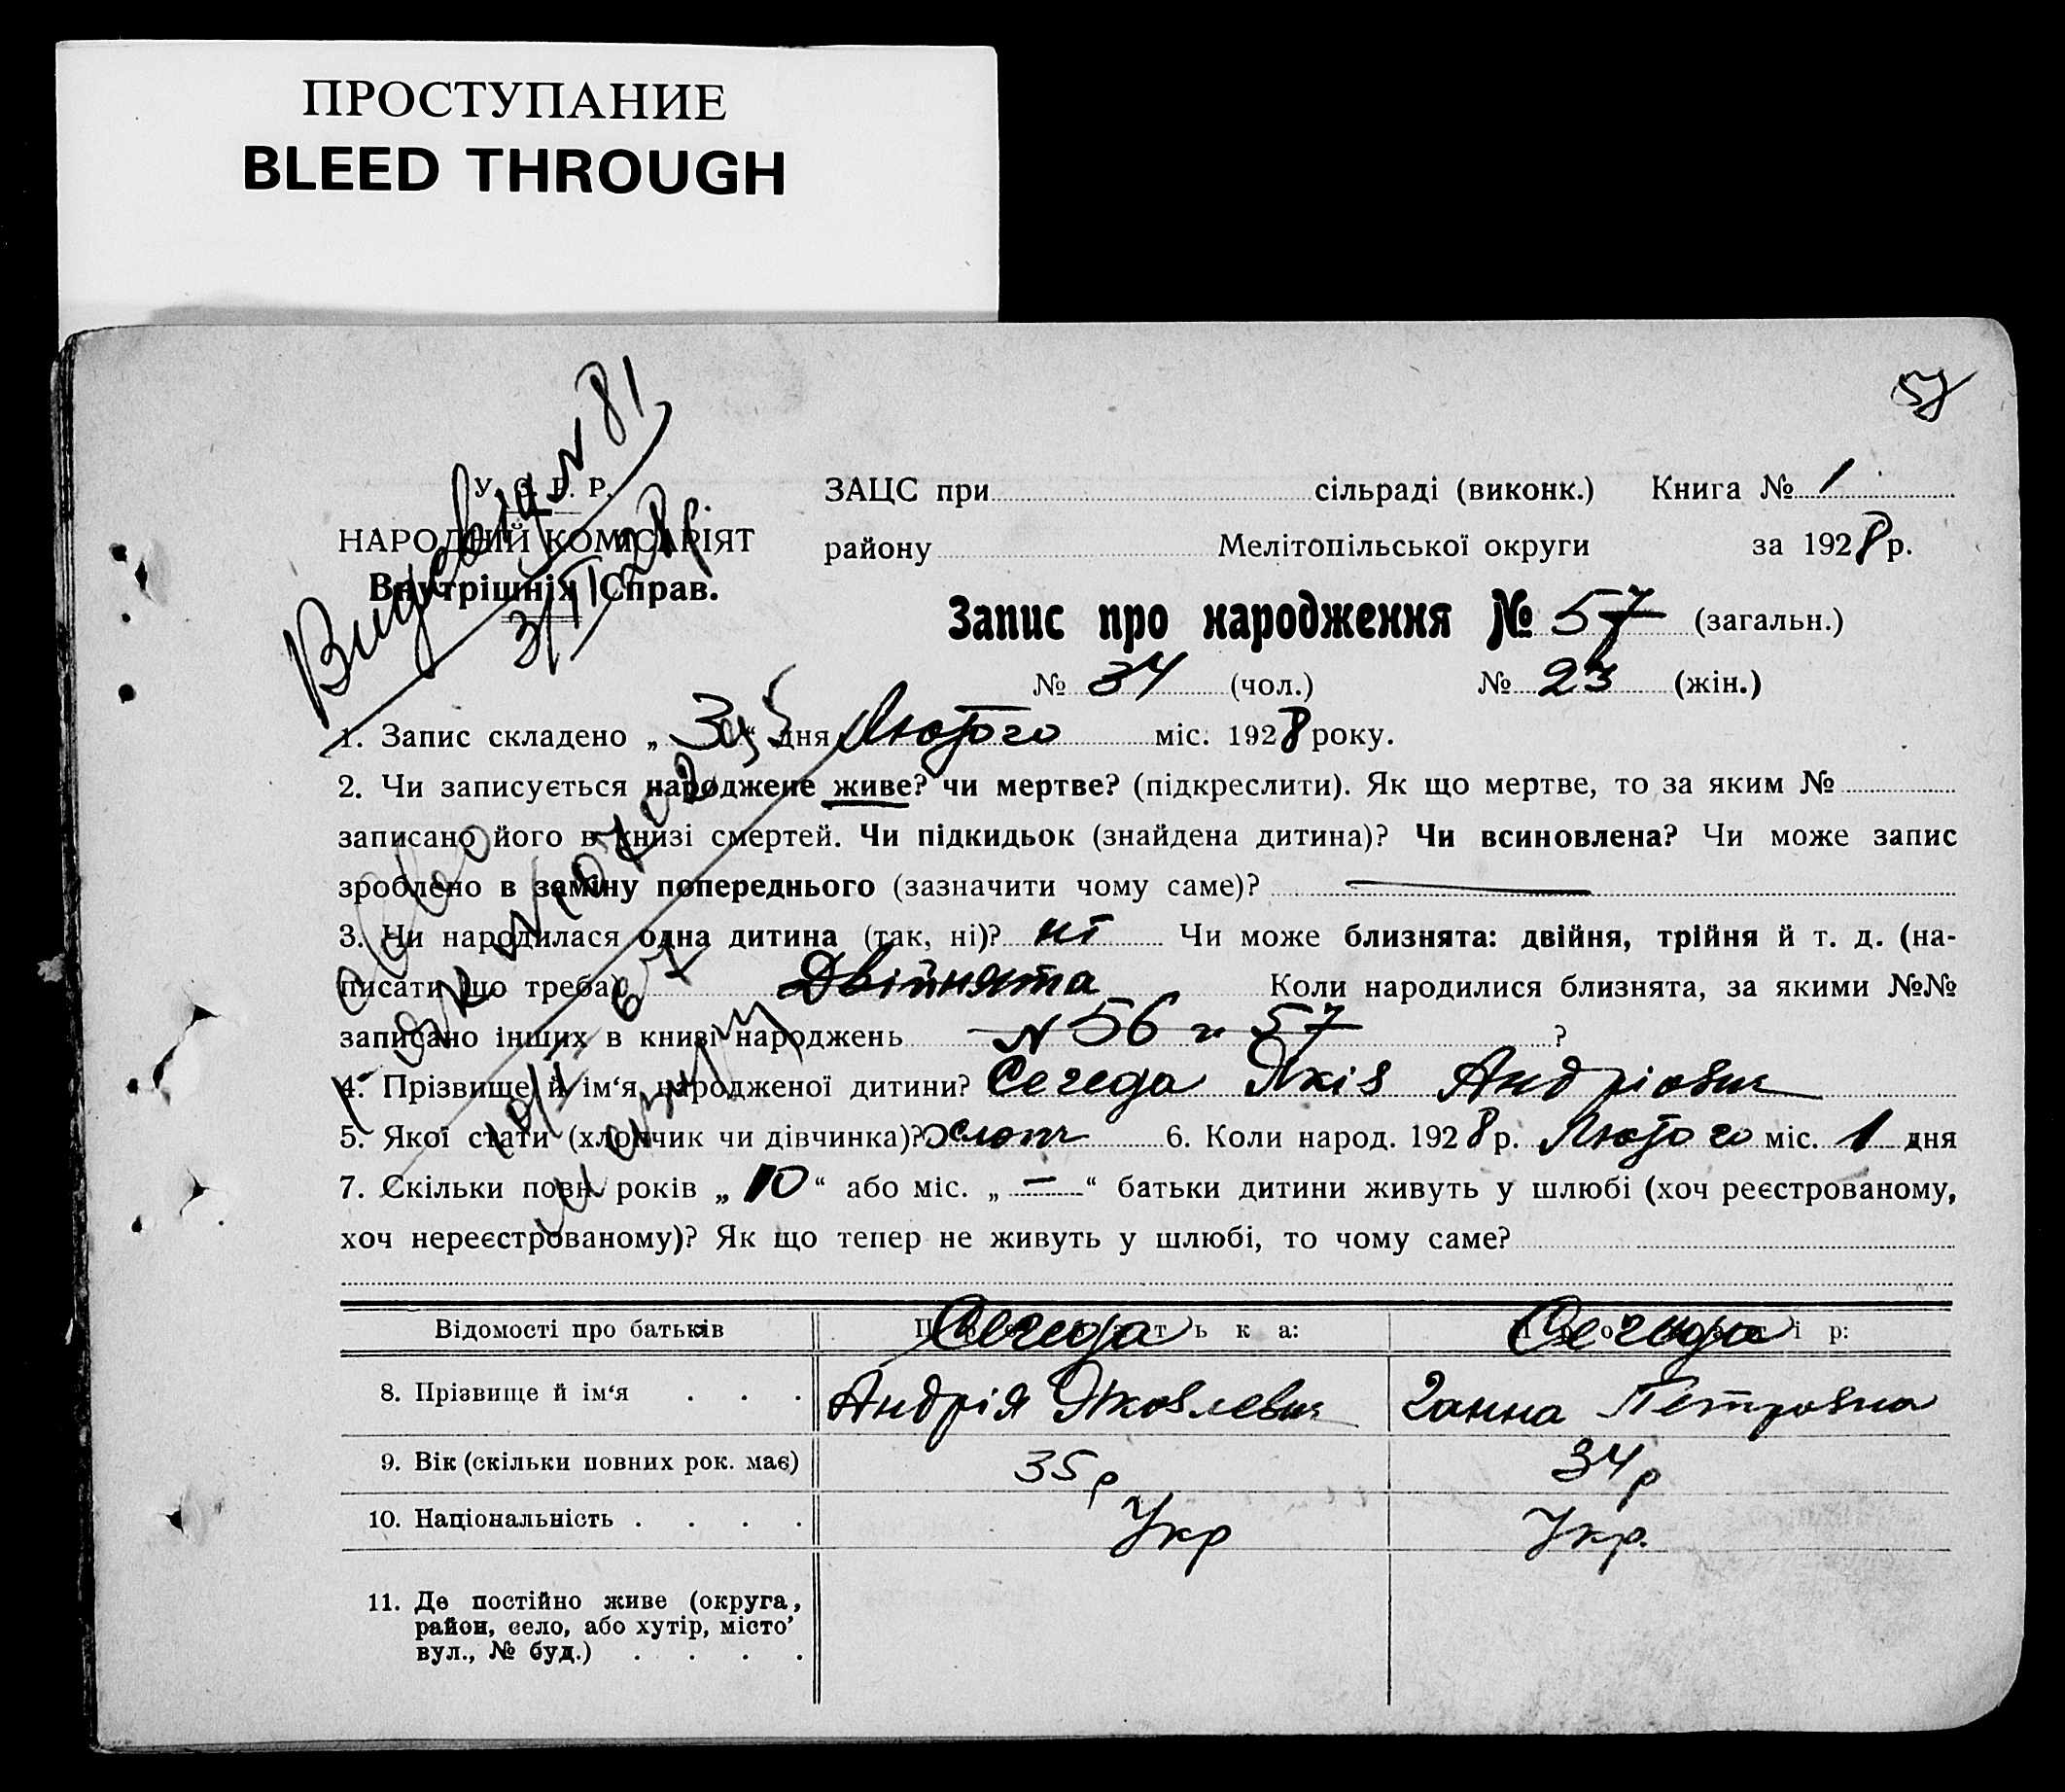 ПРОСТУПАНИЕ
BLEED THROUGH
57
У. С. Р. Р.
НАРОДНІЙ КОМІСАРІЯТ
Внутрішніх Справ.
№ 81
ЗАЦС при сільраді (виконк.) Книга № 1
району Мелітопільської округи за 1928 р.
Запис про народження № 57 (загальн.)
№ 34 (чол.) № 23 (жін.)
1. Запис складено „3“ дня Лютого міс. 1928 року.
2. Чи записується народжене живе? чи мертве? (підкреслити). Як що мертве, то за яким №
записано його в книзі смертей. Чи підкидьок (знайдена дитина)? Чи всиновлена? Чи може запис
зроблено в заміну попереднього (зазначити чому саме)? —
3. Чи народилася одна дитина (так, ні)? ні Чи може близнята: двійня, трійня й т. д. (на-
писати що треба) Двійнята Коли народилися близнята, за якими №№
записано інших в книзі народжень N 56 и 57 ?
4. Прізвище й ім‘я народженої дитини? Сегеда Якiв Андрiович
5. Якої стати (хлопчик чи дівчинка)? хлопч 6. Коли народ. 1928 р. Лютого міс. 1 дня
7. Скільки повн. років „10“ або міс. „—“ батьки дитини живуть у шлюбі (хоч реєстрованому,
хоч нереєстрованому)? Як що тепер не живуть у шлюбі, то чому саме?
Відомості про батьків Сегеда Сегеда
8. Прізвище й ім‘я . . . Андрія Яковлевич Ганна Петровна
9. Вік (скільки повних рок. має) 35 р 34 р
10. Національність . . . . Укр Укр.
11. Де постійно живе (округа,
район, село, або хутір, місто’
вул., № буд.) . . . .